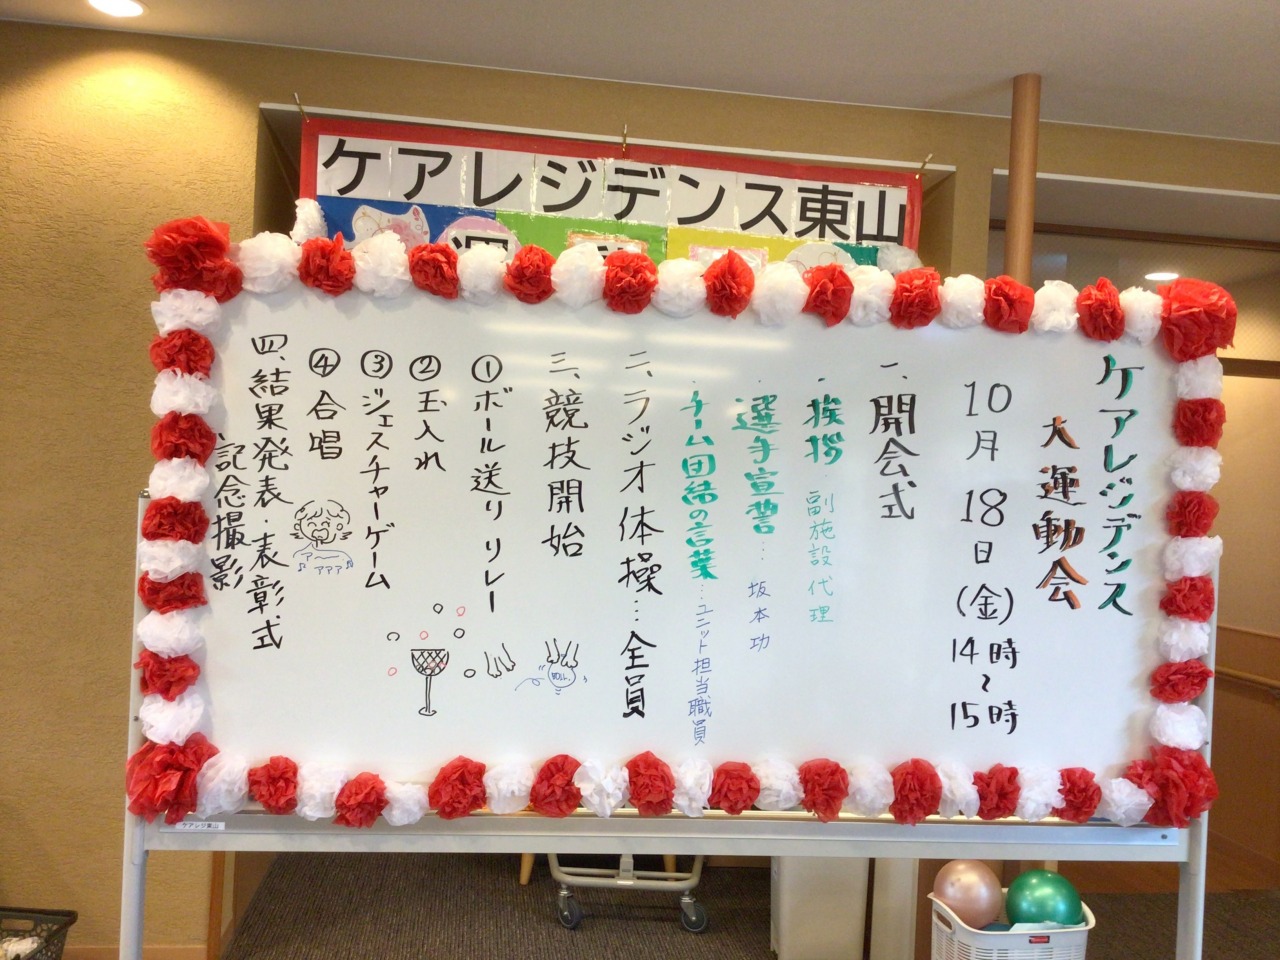 ケアレジデンス東山
ケアレジデンス
大運動会
10月18日(金)
14時~15時
一、開会式
・挨拶・副施設代理
・選手宣誓…坂本功
・チーム団結の言葉…ユニット担当職員
二、ラジオ体操…全員
三、競技開始
①ボール送りリレー
②玉入れ
③ジェスチャーゲーム
④合唱
アー
アアア
四、結果発表・表彰式
、記念撮影
ケアレジ東山